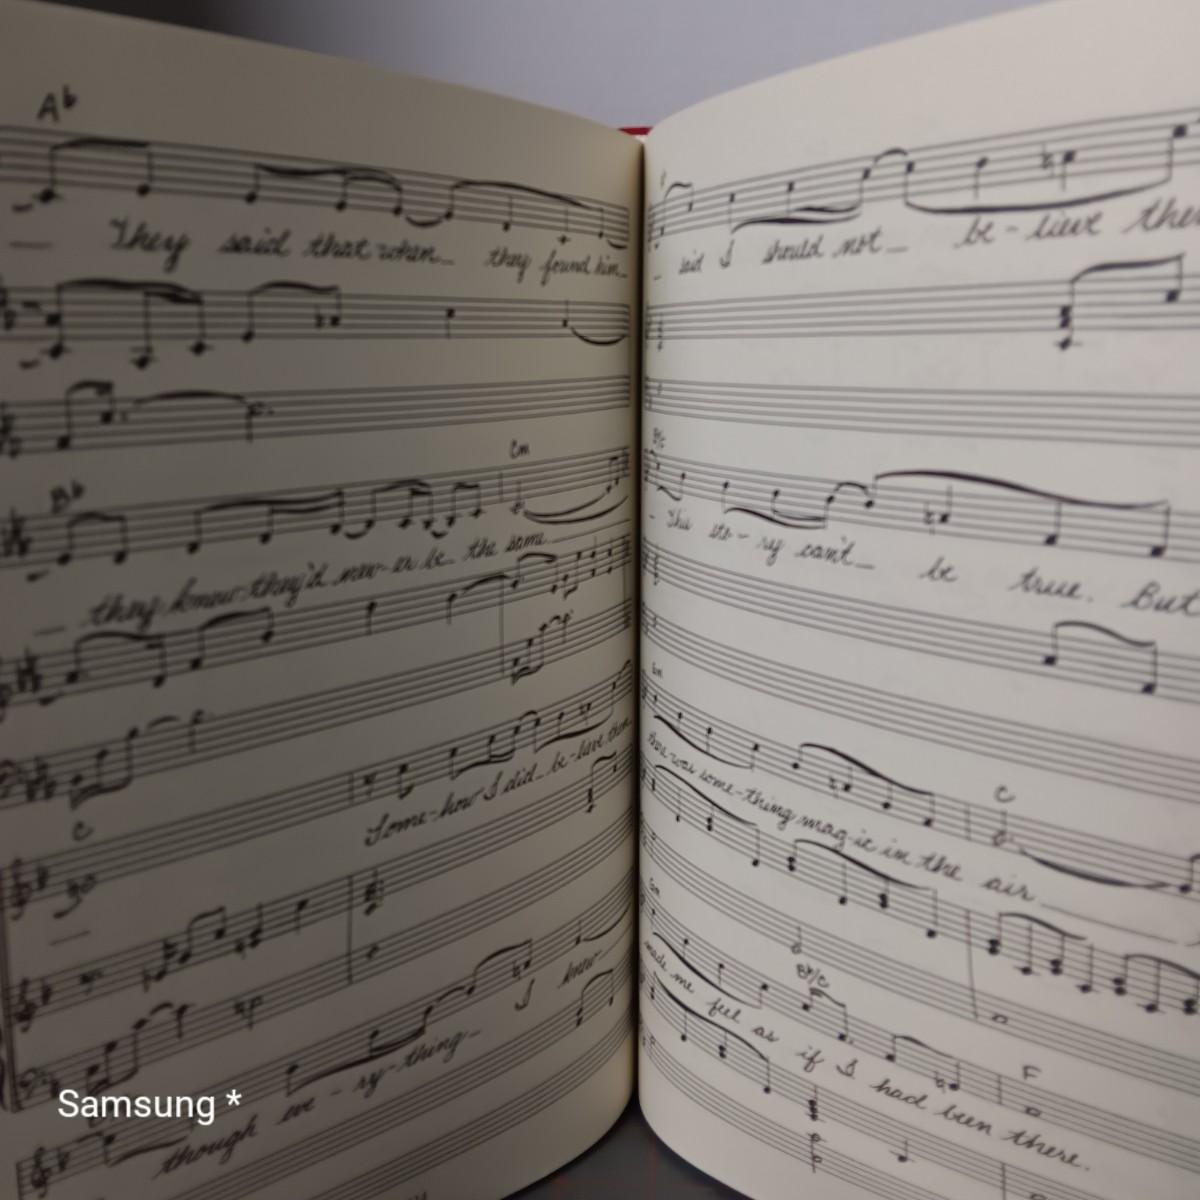 Ab
They said that when_ they found him_
Bb
Cm
they knew they'd nev-er be_ the same
C
Some-how I did_ be-lieve them
though eve-ry-thing_ I knew
said I should not_ be-lieve the
This sto-ry can't_ be true. But
Gm
C
there was some-thing mag-ic in the air
Gm
Bb/C
F
made me feel as if I had been there.
Samsung *